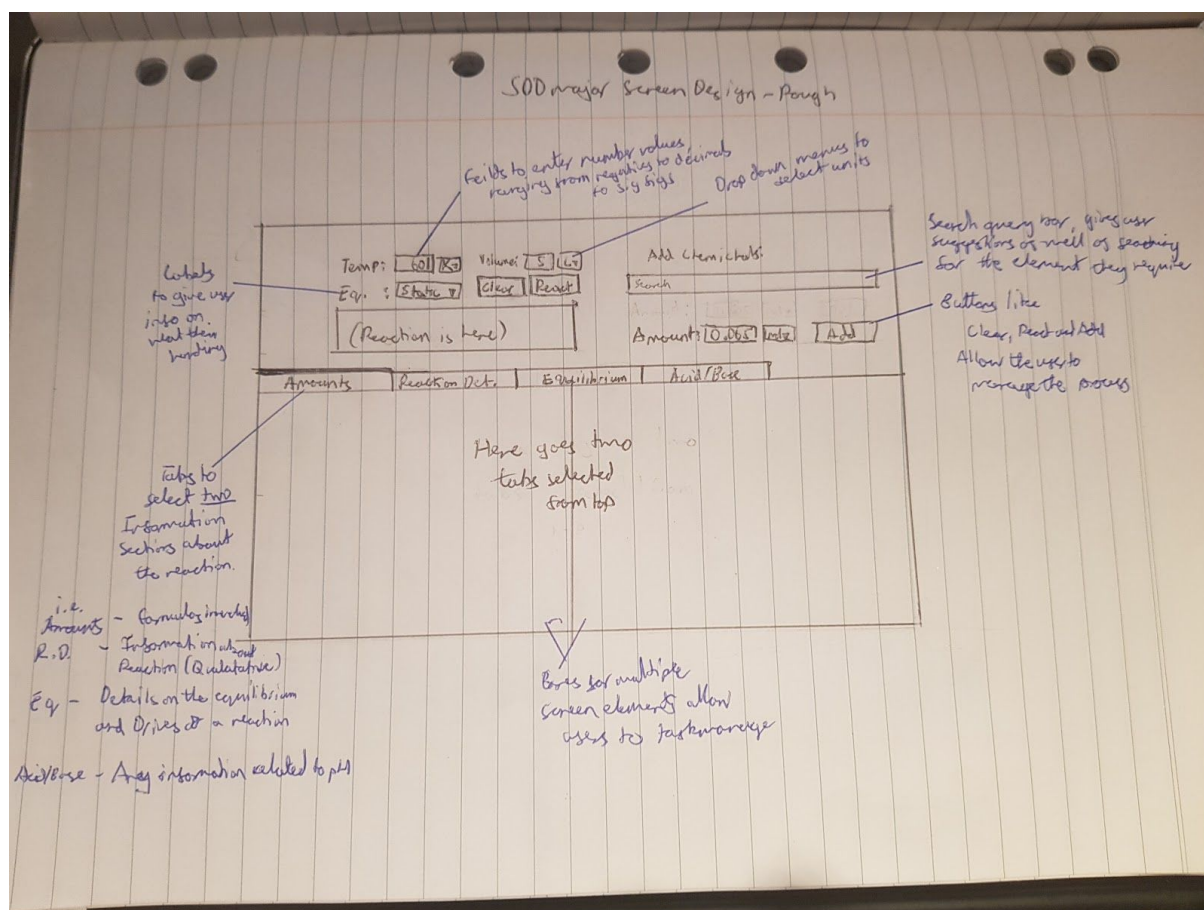 SDD major Screen Design - Rough
Feilds to enter number values,
ranging from negatives to decimals
to sig figs
Drop down menus to
select units
Search query bar, gives user
suggestions as well as searching
for the element they require
Labels
to give user
info on
what their
handing
Temp: 601 K▿ Volume: 5 L▿
Eq. : Static ▿ Clear React
(Reaction is here)
Add Chemichals:
Search
Amount: 0.065 Add
Buttons like
Clear, React and Add
Allow the user to
manage the process
Amounts Reaction Det. Equilibrium Acid/Base
Here goes two
tabs selected
from top
Tabs to
select two
Information
Sections about
the reaction.
i.e.
Amounts - formulas involved
R.D. - Information about
Reaction (Qualatative)
Eq - Details on the equilibrium
and Drives of a reaction
Acid/Base - Any information related to pH
Boxes for multiple
screen elements allow
users to taskmanage